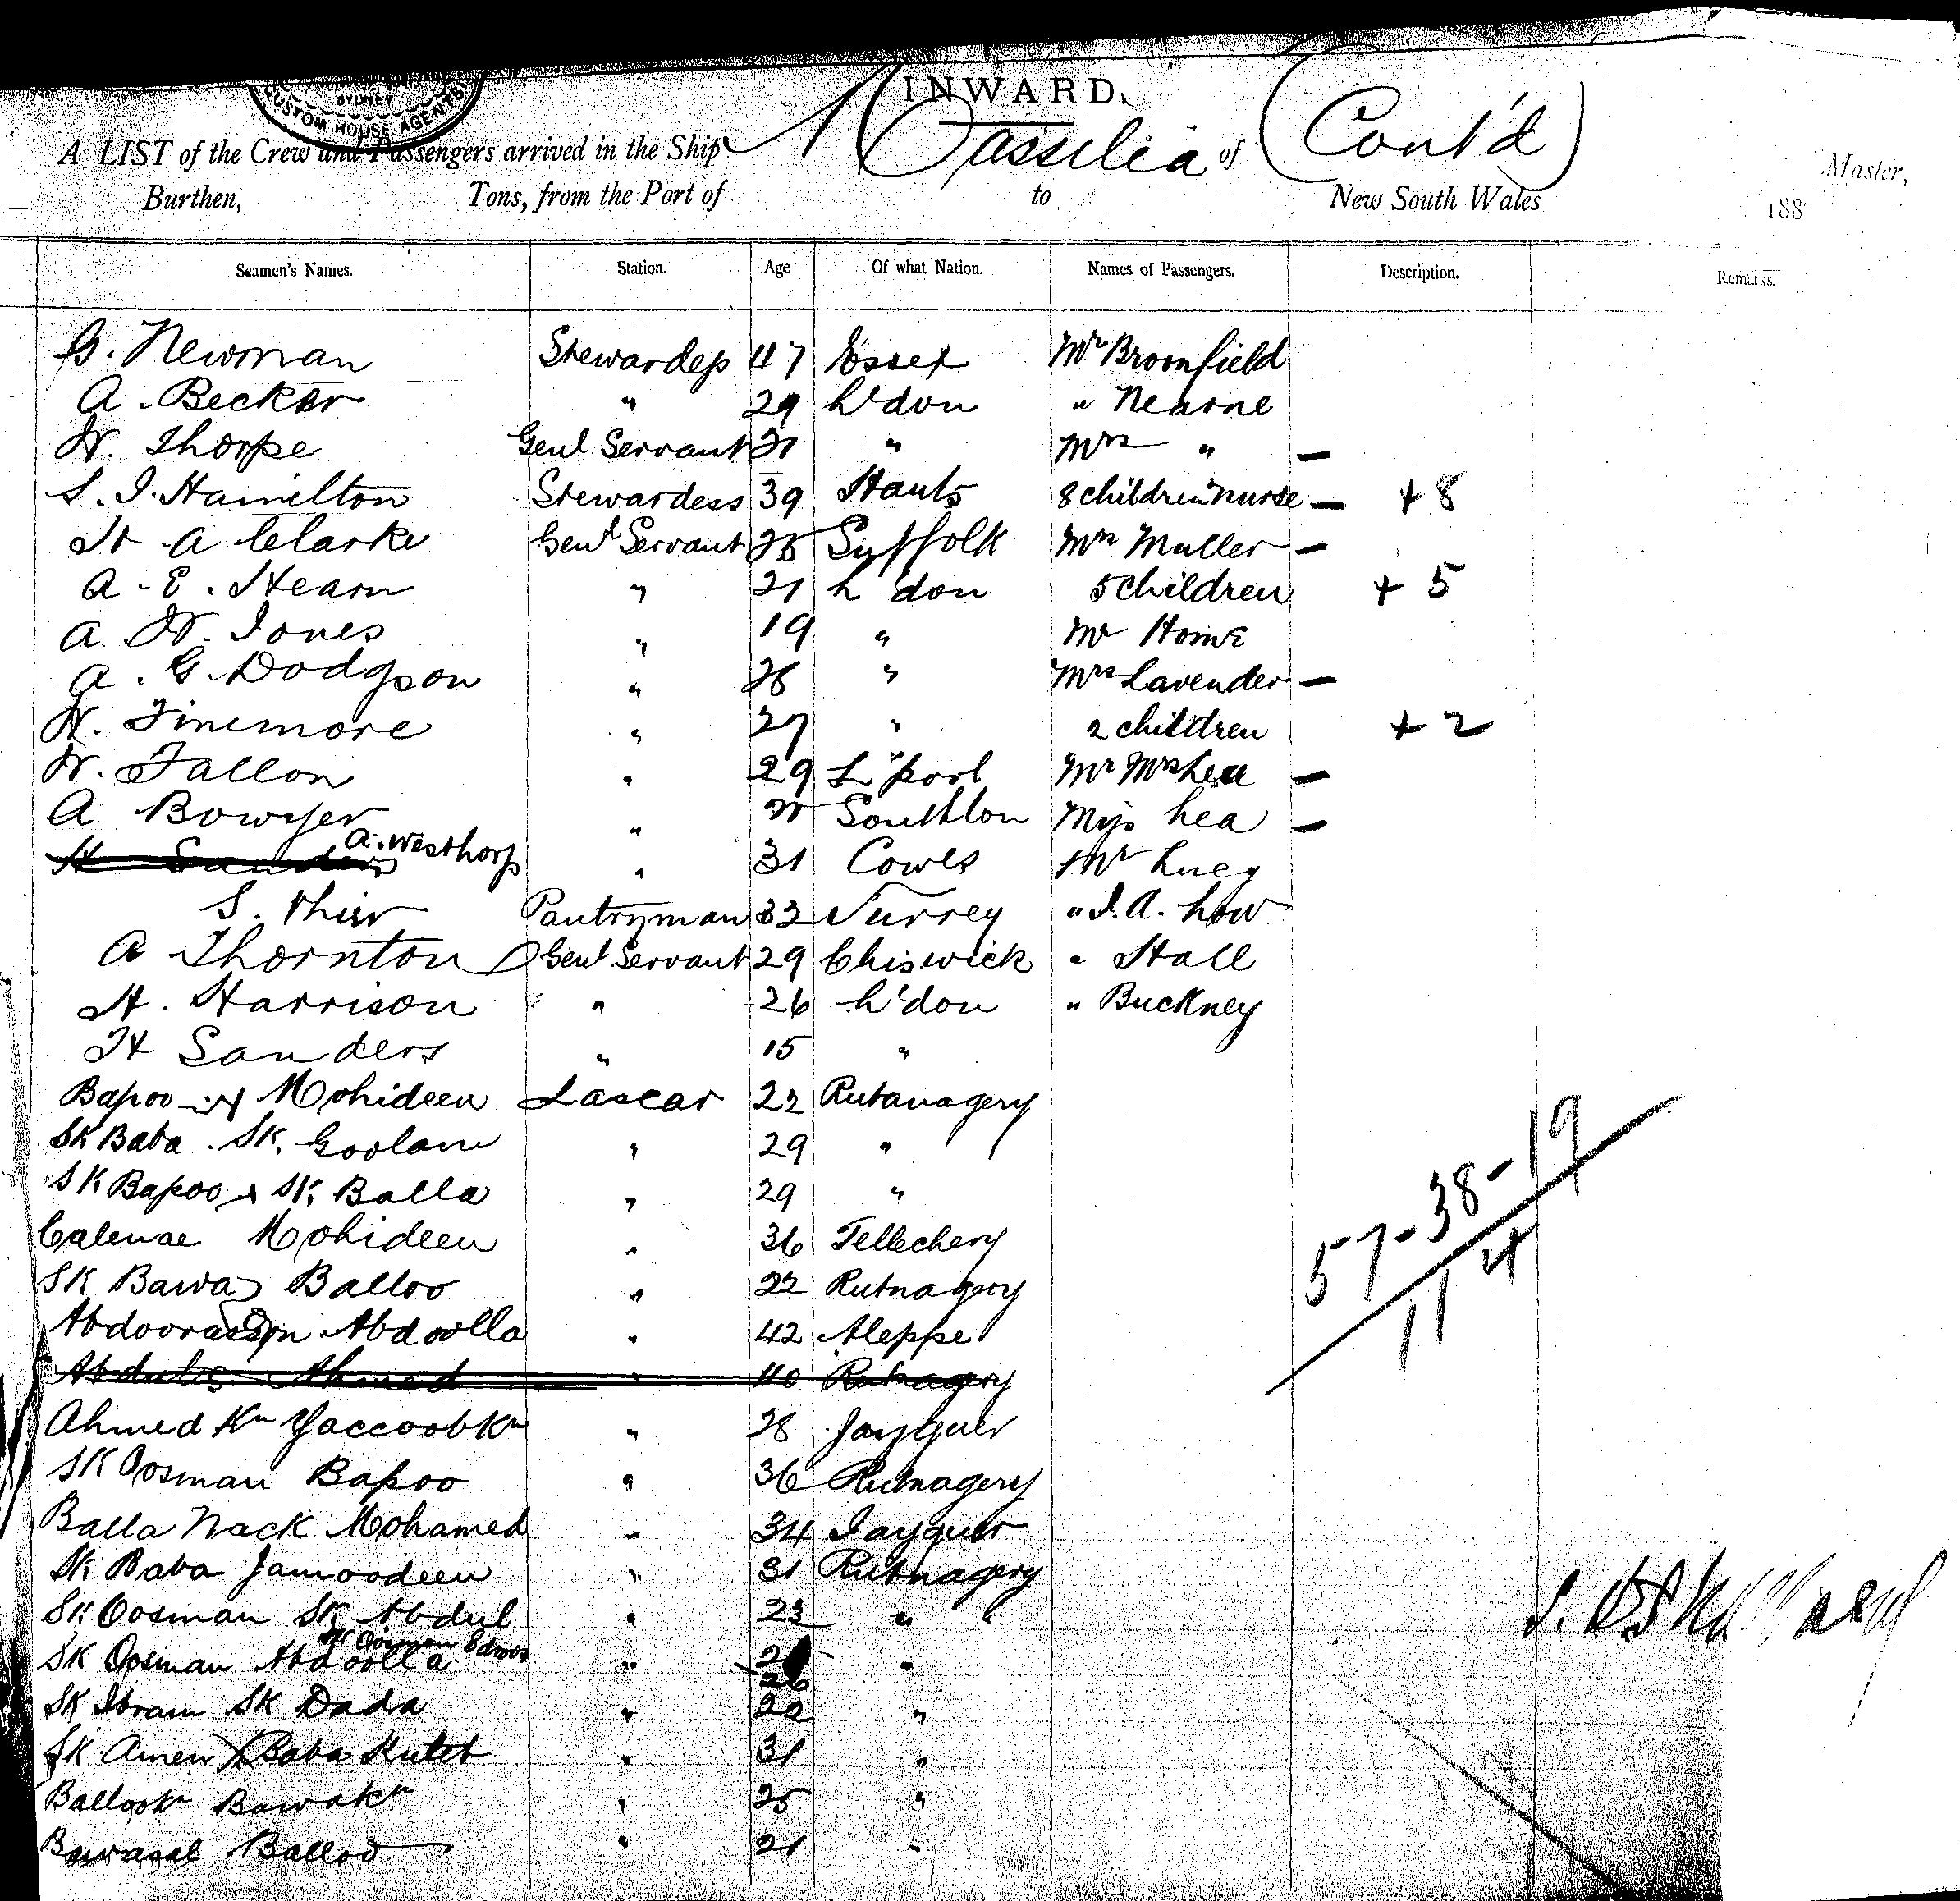 SYDNEY
CUSTOM HOUSE AGENTS
INWARD.
A LIST of the Crew and Passengers arrived in the Ship Massilia of (Cont'd) Master,
Burthen, Tons, from the Port of to New South Wales 188
Seamen's Names. Station. Age Of what Nation. Names of Passengers. Description. Remarks.
G. Newman Stewardess 47 Essex Mr Broomfield
A. Becker " 29 L'don " Nearne
W. Thorpe Genl Servant 21 " Mrs " —
S. J. Hamilton Stewardess 39 Hants 8 children nurse — + 8
H A Clarke Genl Servant 25 Suffolk Mrs Muller —
A. E. Hearn " 21 L'don 5 children + 5
A W. Jones " 19 " Mr Home
A. G. Dodgson " 28 " Mrs Lavender —
W. Finemore " 27 " 2 children + 2
W. Fallon " 29 L'pool Mr Mrs Lea —
A Bowyer " Southton Miss Lea —
H Sanders A. Westhorp " 31 Cowes Mr Lucy
S. Pantryman 33 Surrey " J. A. Low
A Thornton Genl Servant 29 Chiswick " Hall
H. Harrison " 26 L'don " Buckney
H Sanders " 15 "
Bapoo Mohideen Lascar 22 Rutanagery
SK Baba SK. Goolam " 29 "
SK Bapoo SK Balla " 29 "
Mohideen " 36 Tellechery
SK Bawa Balloo " 22 Rutnagery
Abdoola " 42 Aleppe
Ahmed " 40 Rutnagery
Ahmed Kn Yaccoob Kn " 28 Jayguer
SK Oosman Bapoo " 36 Rutnagery
Balla Nack Mohamed " 34 Jayguer
SK Baba Jamoodeen " 31 Rutnagery
SK Oosman SK Abdul " 23 "
SK Oosman Abdoolla " 26 "
SK Ibram SK Dada " 22 "
SK Amen Baba Kuteb " 31 "
Ballookn Bawakn " 25 "
Balloo " 21 "
57-38-19
114